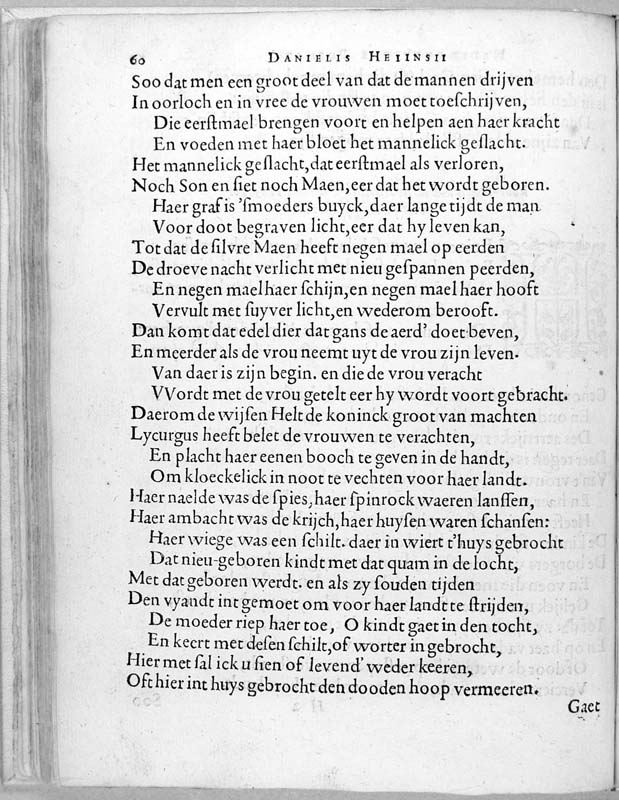 60 DANIELIS HEIINSII
Soo dat men een groot deel van dat de mannen drijven
In oorloch en in vree de vrouwen moet toeſchrijven,
Die eerſtmael brengen voort en helpen aen haer kracht
En voeden met haer bloet het mannelick geſlacht.
Het mannelick geſlacht, dat eerſtmael als verloren,
Noch Son en ſiet noch Maen, eer dat het wordt geboren.
Haer graf is 'ſmoeders buyck, daer lange tijdt de man
Voor doot begraven licht, eer dat hy leven kan,
Tot dat de ſilvre Maen heeft negen mael op eerden
De droeve nacht verlicht met nieu geſpannen peerden,
En negen mael haer ſchijn, en negen mael haer hooft
Vervult met ſuyver licht, en wederom berooft.
Dan komt dat edel dier dat gans de aerd' doet beven,
En meerder als de vrou neemt uyt de vrou zijn leven.
Van daer is zijn begin. en die de vrou veracht
VVordt met de vrou getelt eer hy wordt voort gebracht.
Daerom de wijſen Helt de koninck groot van machten
Lycurgus heeft belet de vrouwen te verachten,
En placht haer eenen booch te geven in de handt,
Om kloeckelick in noot te vechten voor haer landt.
Haer naelde was de ſpies, haer ſpinrock waeren lanſſen,
Haer ambacht was de krijch, haer huyſen waren ſchanſen:
Haer wiege was een ſchilt. daer in wiert t'huys gebrocht
Dat nieu-geboren kindt met dat quam in de locht,
Met dat geboren werdt. en als zy ſouden tijden
Den vyandt int gemoet om voor haer landt te ſtrijden,
De moeder riep haer toe, O kindt gaet in den tocht,
En keert met deſen ſchilt, of worter in gebrocht,
Hier met ſal ick u ſien of levend' weder keeren,
Oft hier int huys gebrocht den dooden hoop vermeeren.
Gaet